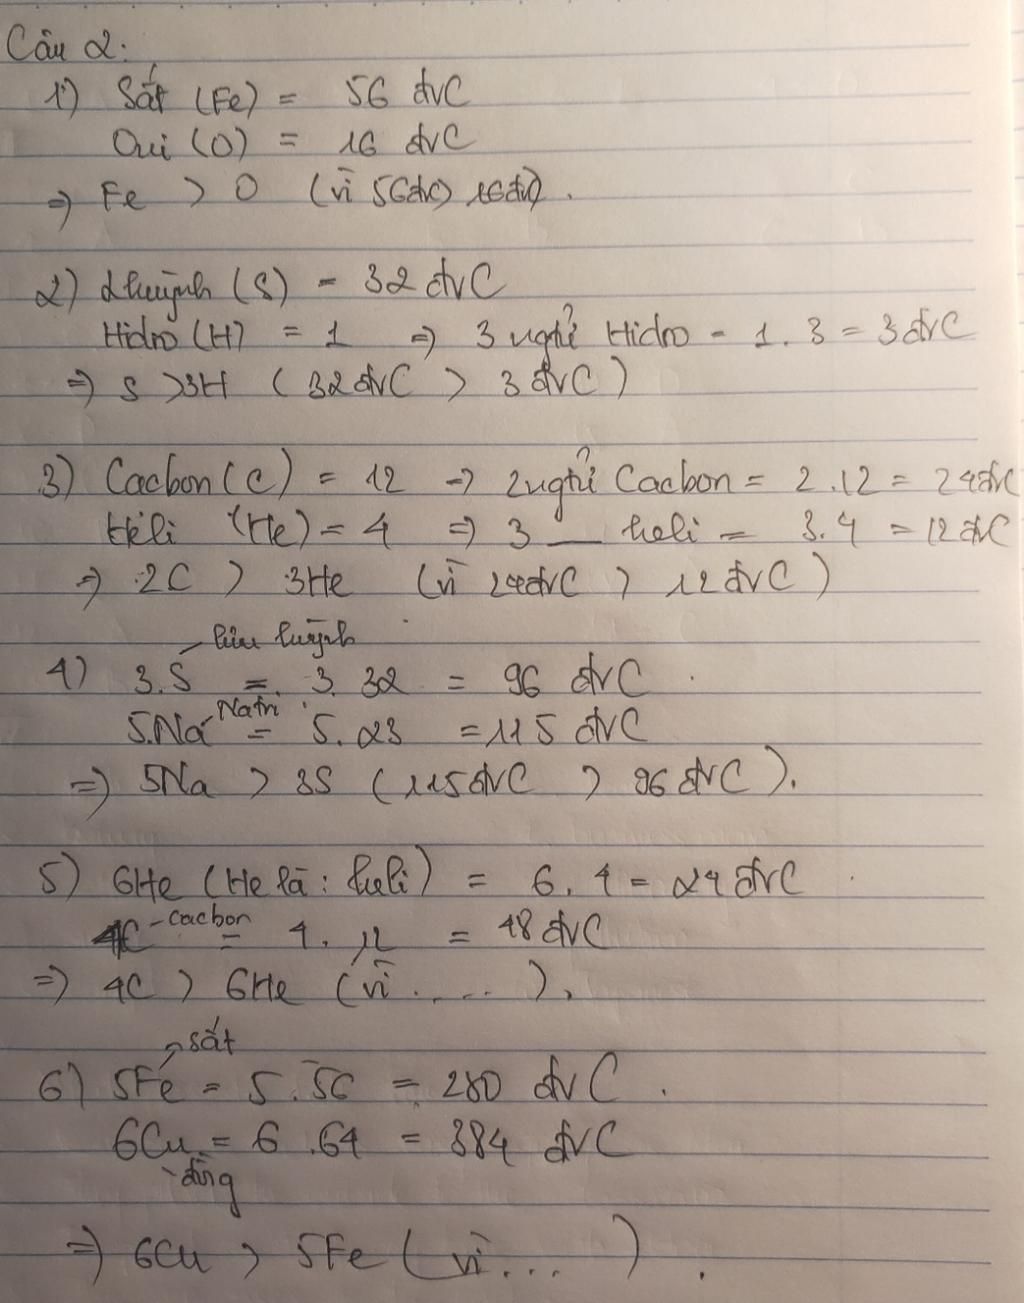 Câu 2:
1) Sắt (Fe) = 56 đvC
Oxi (O) = 16 đvC
=> Fe > O (vì 56đvC > 16đvC).
2) Lhuỳnh (S) = 32 đvC
Hidro (H) = 1 => 3 ngtử Hidro = 1 . 3 = 3 đvC
=> S > 3H ( 32 đvC > 3 đvC )
3) Cacbon (C) = 12 => 2 ngtử Cacbon = 2 . 12 = 24 đvC
Hêli (He) = 4 => 3 __ heli = 3 . 4 = 12 đvC
=> 2C > 3He (vì 24đvC > 12 đvC )
lưu huỳnh
4) 3.S = 3. 32 = 96 đvC .
Natri
5.Na = 5 . 23 = 115 đvC
=> 5Na > 3S ( 115 đvC > 96 đvC ).
5) 6He (He là : heli) = 6 . 4 = 24 đvC
4C - cacbon = 4 . 12 = 48 đvC
=> 4C > 6He (vì . . . . ).
sắt
6) 5Fe = 5 . 56 = 280 đvC .
6Cu = 6 . 64 = 384 đvC
- đồng
=> 6Cu > 5Fe ( vì . . . ) .